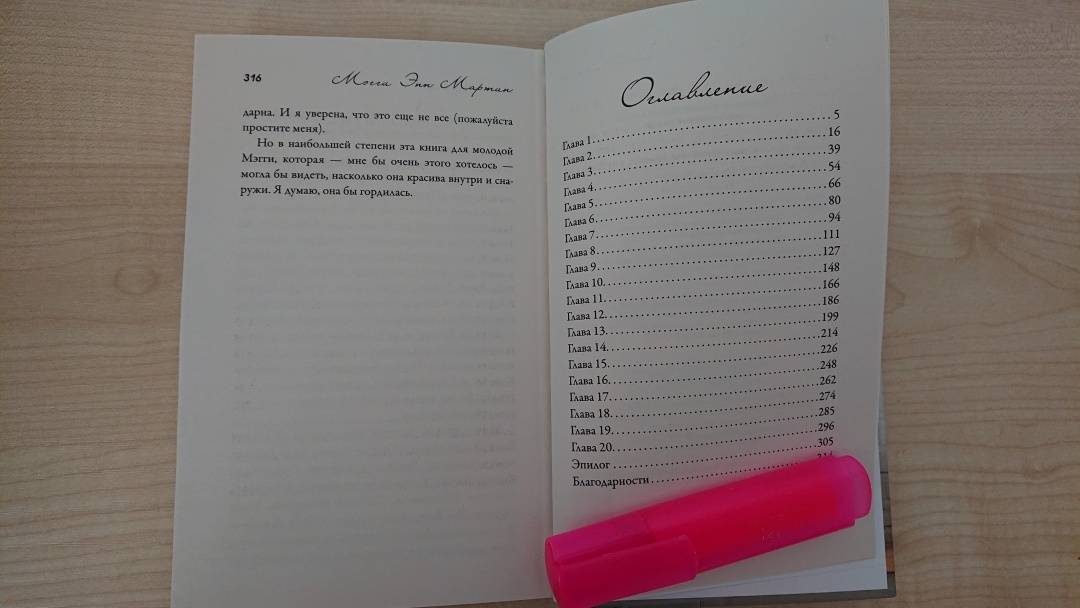 316 Мэгги Энн Мартин
дарна. И я уверена, что это еще не все (пожалуйста
простите меня).
Но в наибольшей степени эта книга для молодой
Мэгги, которая — мне бы очень этого хотелось —
могла бы видеть, насколько она красива внутри и сна-
ружи. Я думаю, она бы гордилась.
Оглавление
Глава 1 5
Глава 2 16
Глава 3 39
Глава 4 54
Глава 5 66
Глава 6 80
Глава 7 94
Глава 8 111
Глава 9 127
Глава 10 148
Глава 11 166
Глава 12 186
Глава 13 199
Глава 14 214
Глава 15 226
Глава 16 248
Глава 17 262
Глава 18 274
Глава 19 285
Глава 20 296
Эпилог 305
Благодарности 314